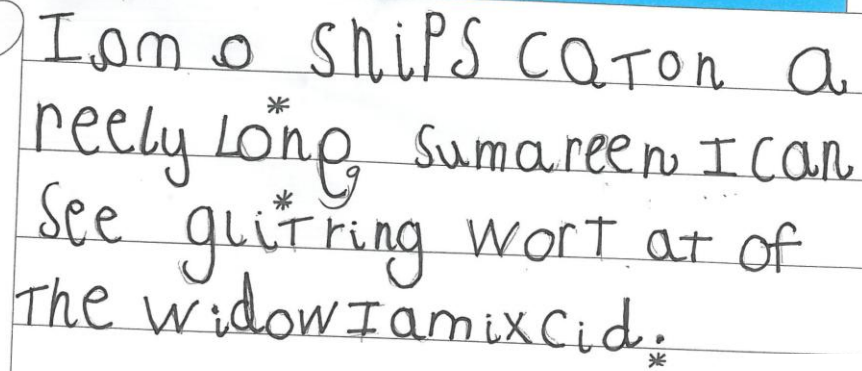 I am a ships caTon a
reely Long sumareen I can
See gliTring worT at of
The widow I am ixcid.